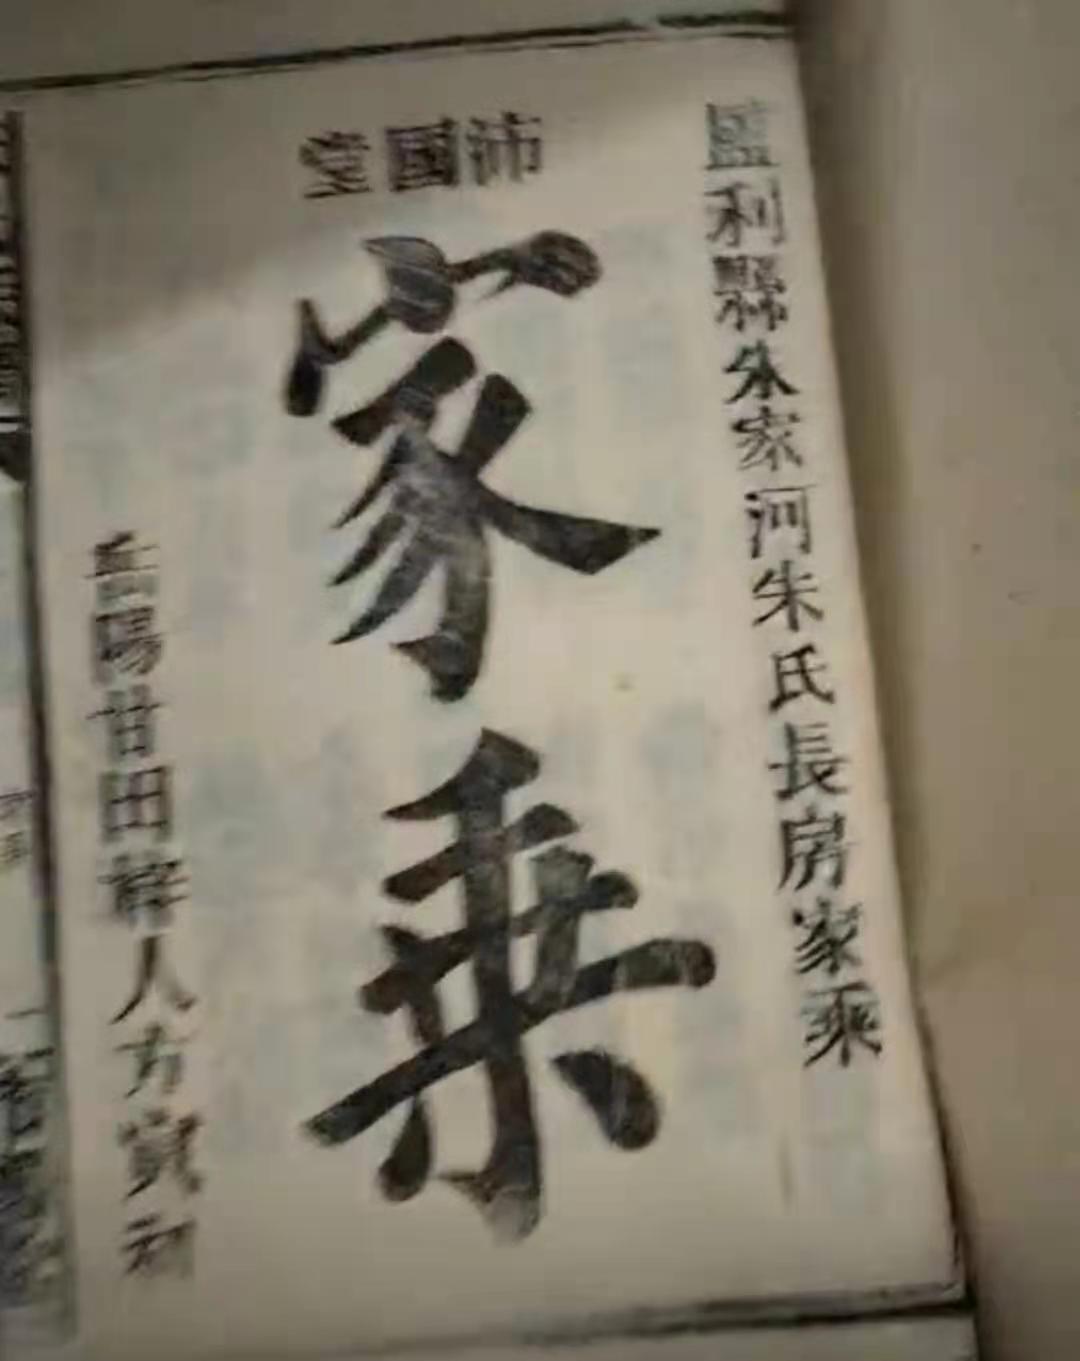 監利縣朱家河朱氏長房家乘
沛國堂
家乘
岳陽甘田梓人方寅初